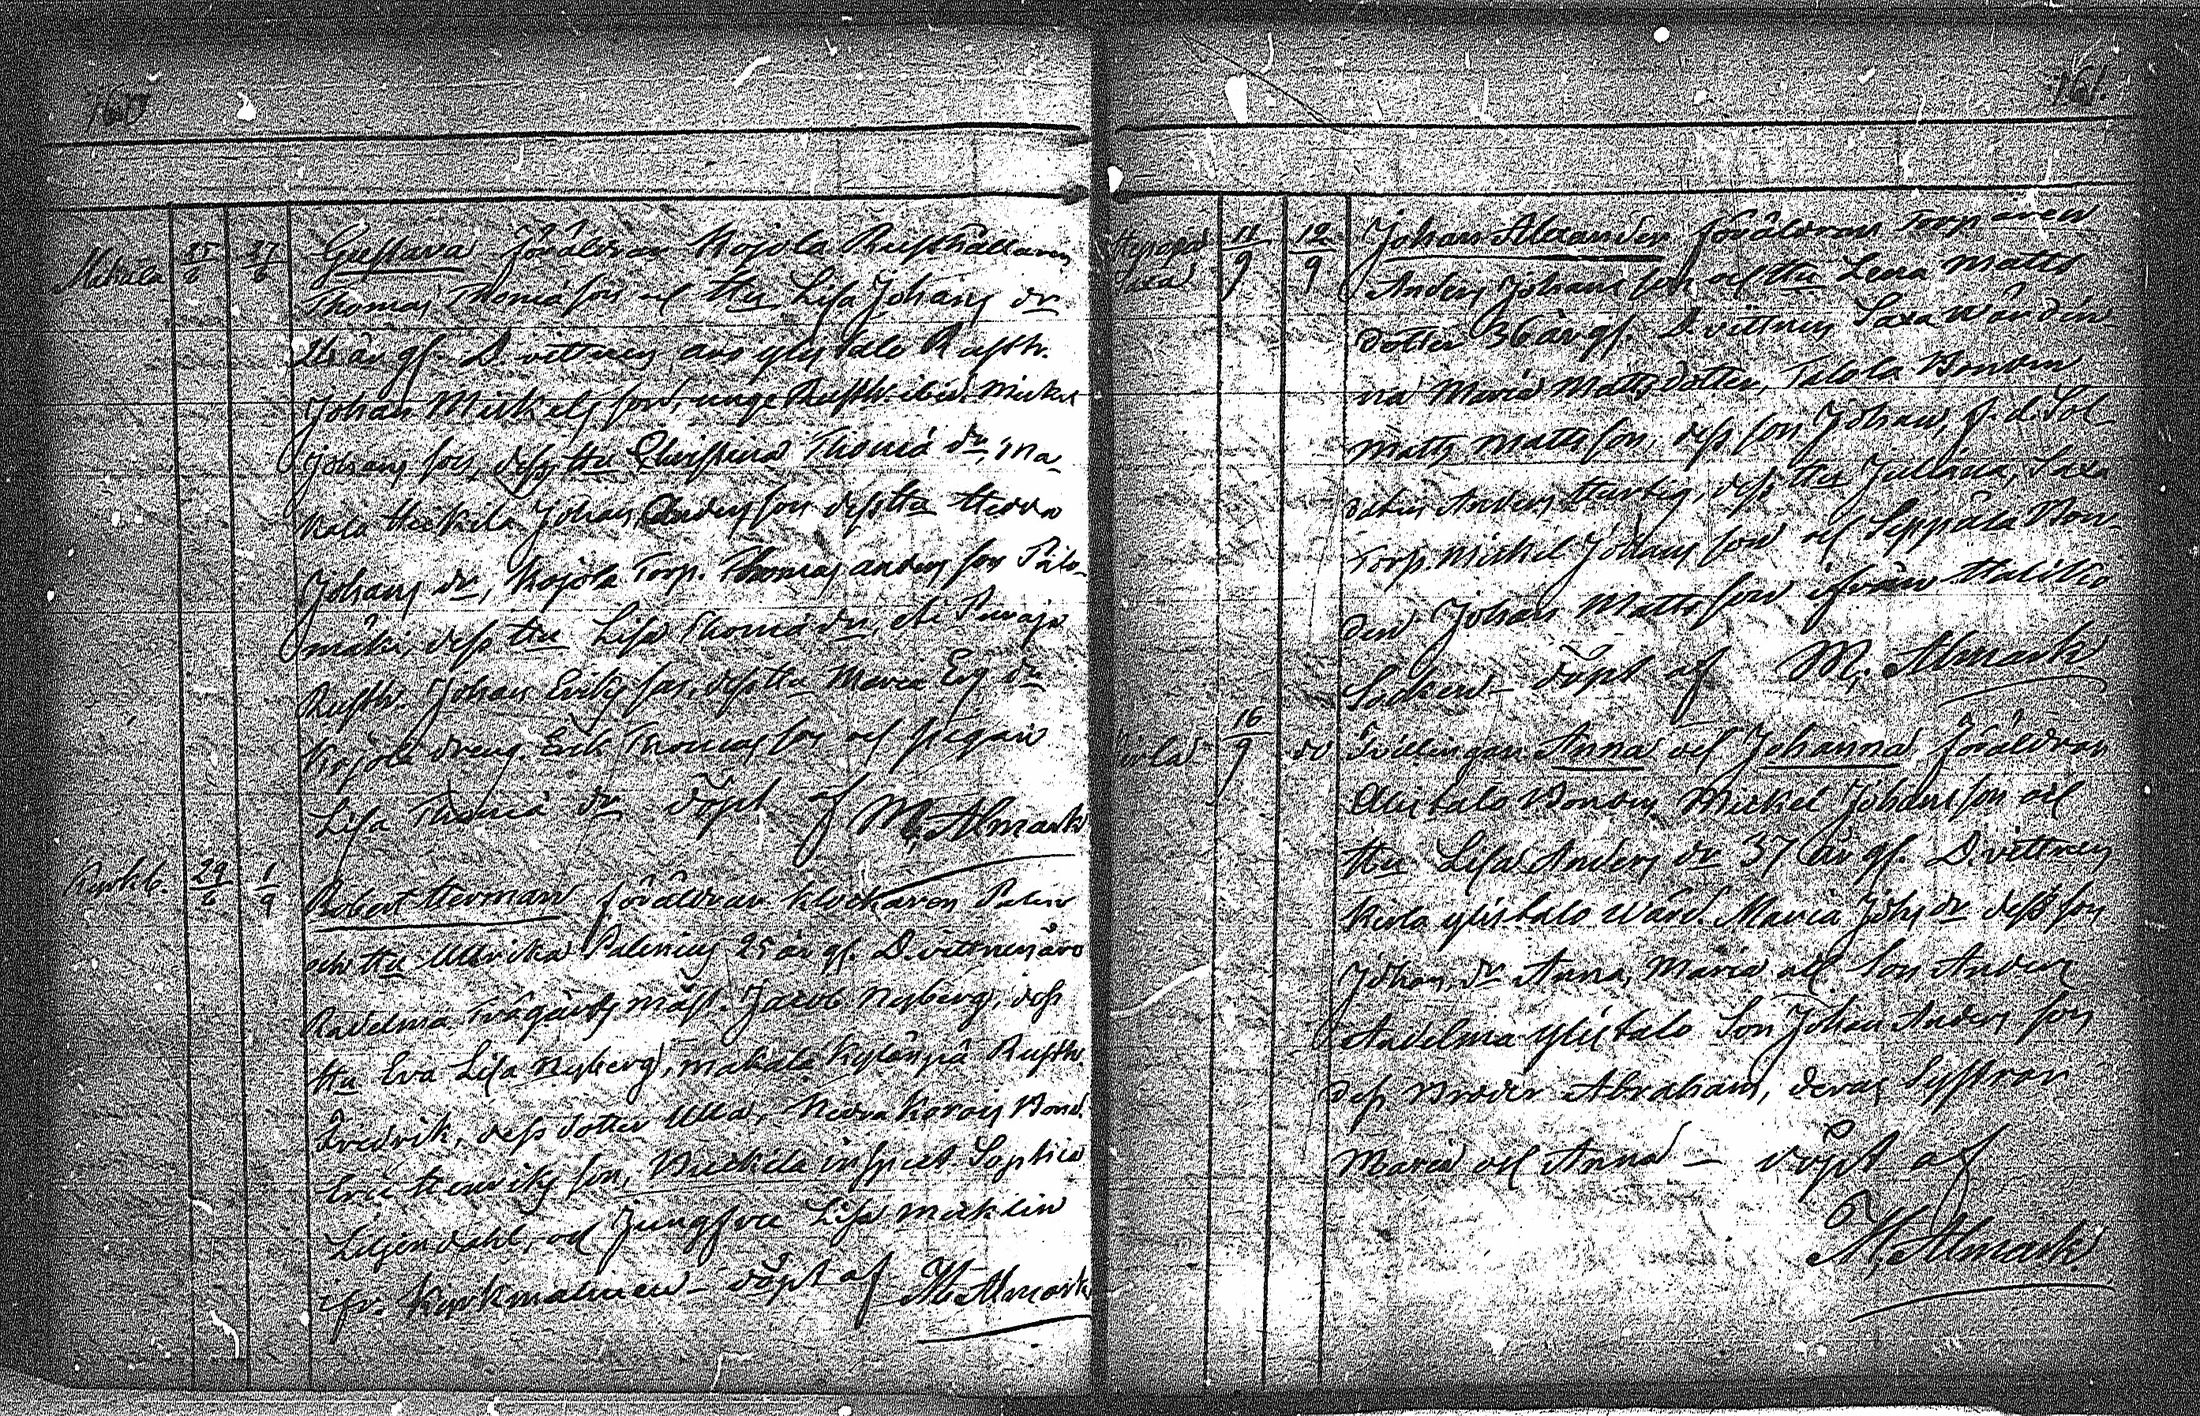 160
Makala 25/6 27/6 Gustava föräldrar Kojola Rusthållaren
Thomas Thomæ son och Hu Lisa Johans dr
26 år gl. D. vittnen äro ylistalo Rusth.
Johan Mickels son, unge Rusth. ibid. Mickel
Johans son, dess Hu Christina Thomæ dr, Ma-
kala Heikila Johan Anders son dess Hu Hedda
Johans dr, Kojola Torp. Thomas Anders son
mäki, dess Hu Lisa Thomæ dr,
Rusth. Johan Eriks son, dess Hu Maria Er: dr
Kojola dreng Erik Thomas son och pigan
Lisa Thomæ dr döpt af M. Almark
Kyrkb. 29/6 1/9 Robert Herman föräldrar Klockaren
och Hu Ulrika Palenius 25 år gl. D. vittnen äro
Trägårds mäst. Jacob Nyberg, dess
Hu Eva Lisa Nyberg, Makala Kylänpä Rusth.
Fredrik, dess dotter Ulla, Bond.
Eric Henriks son, inspect. Sophia
Liljendahl, och Jungfru Lisa Micklin
ifr. Kyrkmalmen - döpt af M. Almark
161.
11/9 12/9 Johan Alexander föräldrar Torparen
Anders Johans son och Hu Lena Matts
dotter 36 år gl. D. vittnen Saxa Wärdin-
na Maria Matts dotter, Talola Bonden
Matts Matts son, dess son Johan, f. d. Sol-
daten Anders Hurtig, dess Hu Juliana, Saxa
Torp. Mickel Johans son och Seppälä Bon-
den Johan Matts son ifrån Halikko
Socken - döpt af M. Almark
16/9 do Tvillingar Anna och Johanna föräldrar
Alistalo Bonden Mickel Johans son och
Hu Lisa Anders dr 37 år gl. D. vittnen
Kirla ylistalo Wärd. Maria Johs dr dess son
Johan, dr Anna, Maria och son Anders
Andelma ylistalo Son Johan Anders son
dess Broder Abraham, deras Systrar
Maria och Anna - döpt af
M. Almark